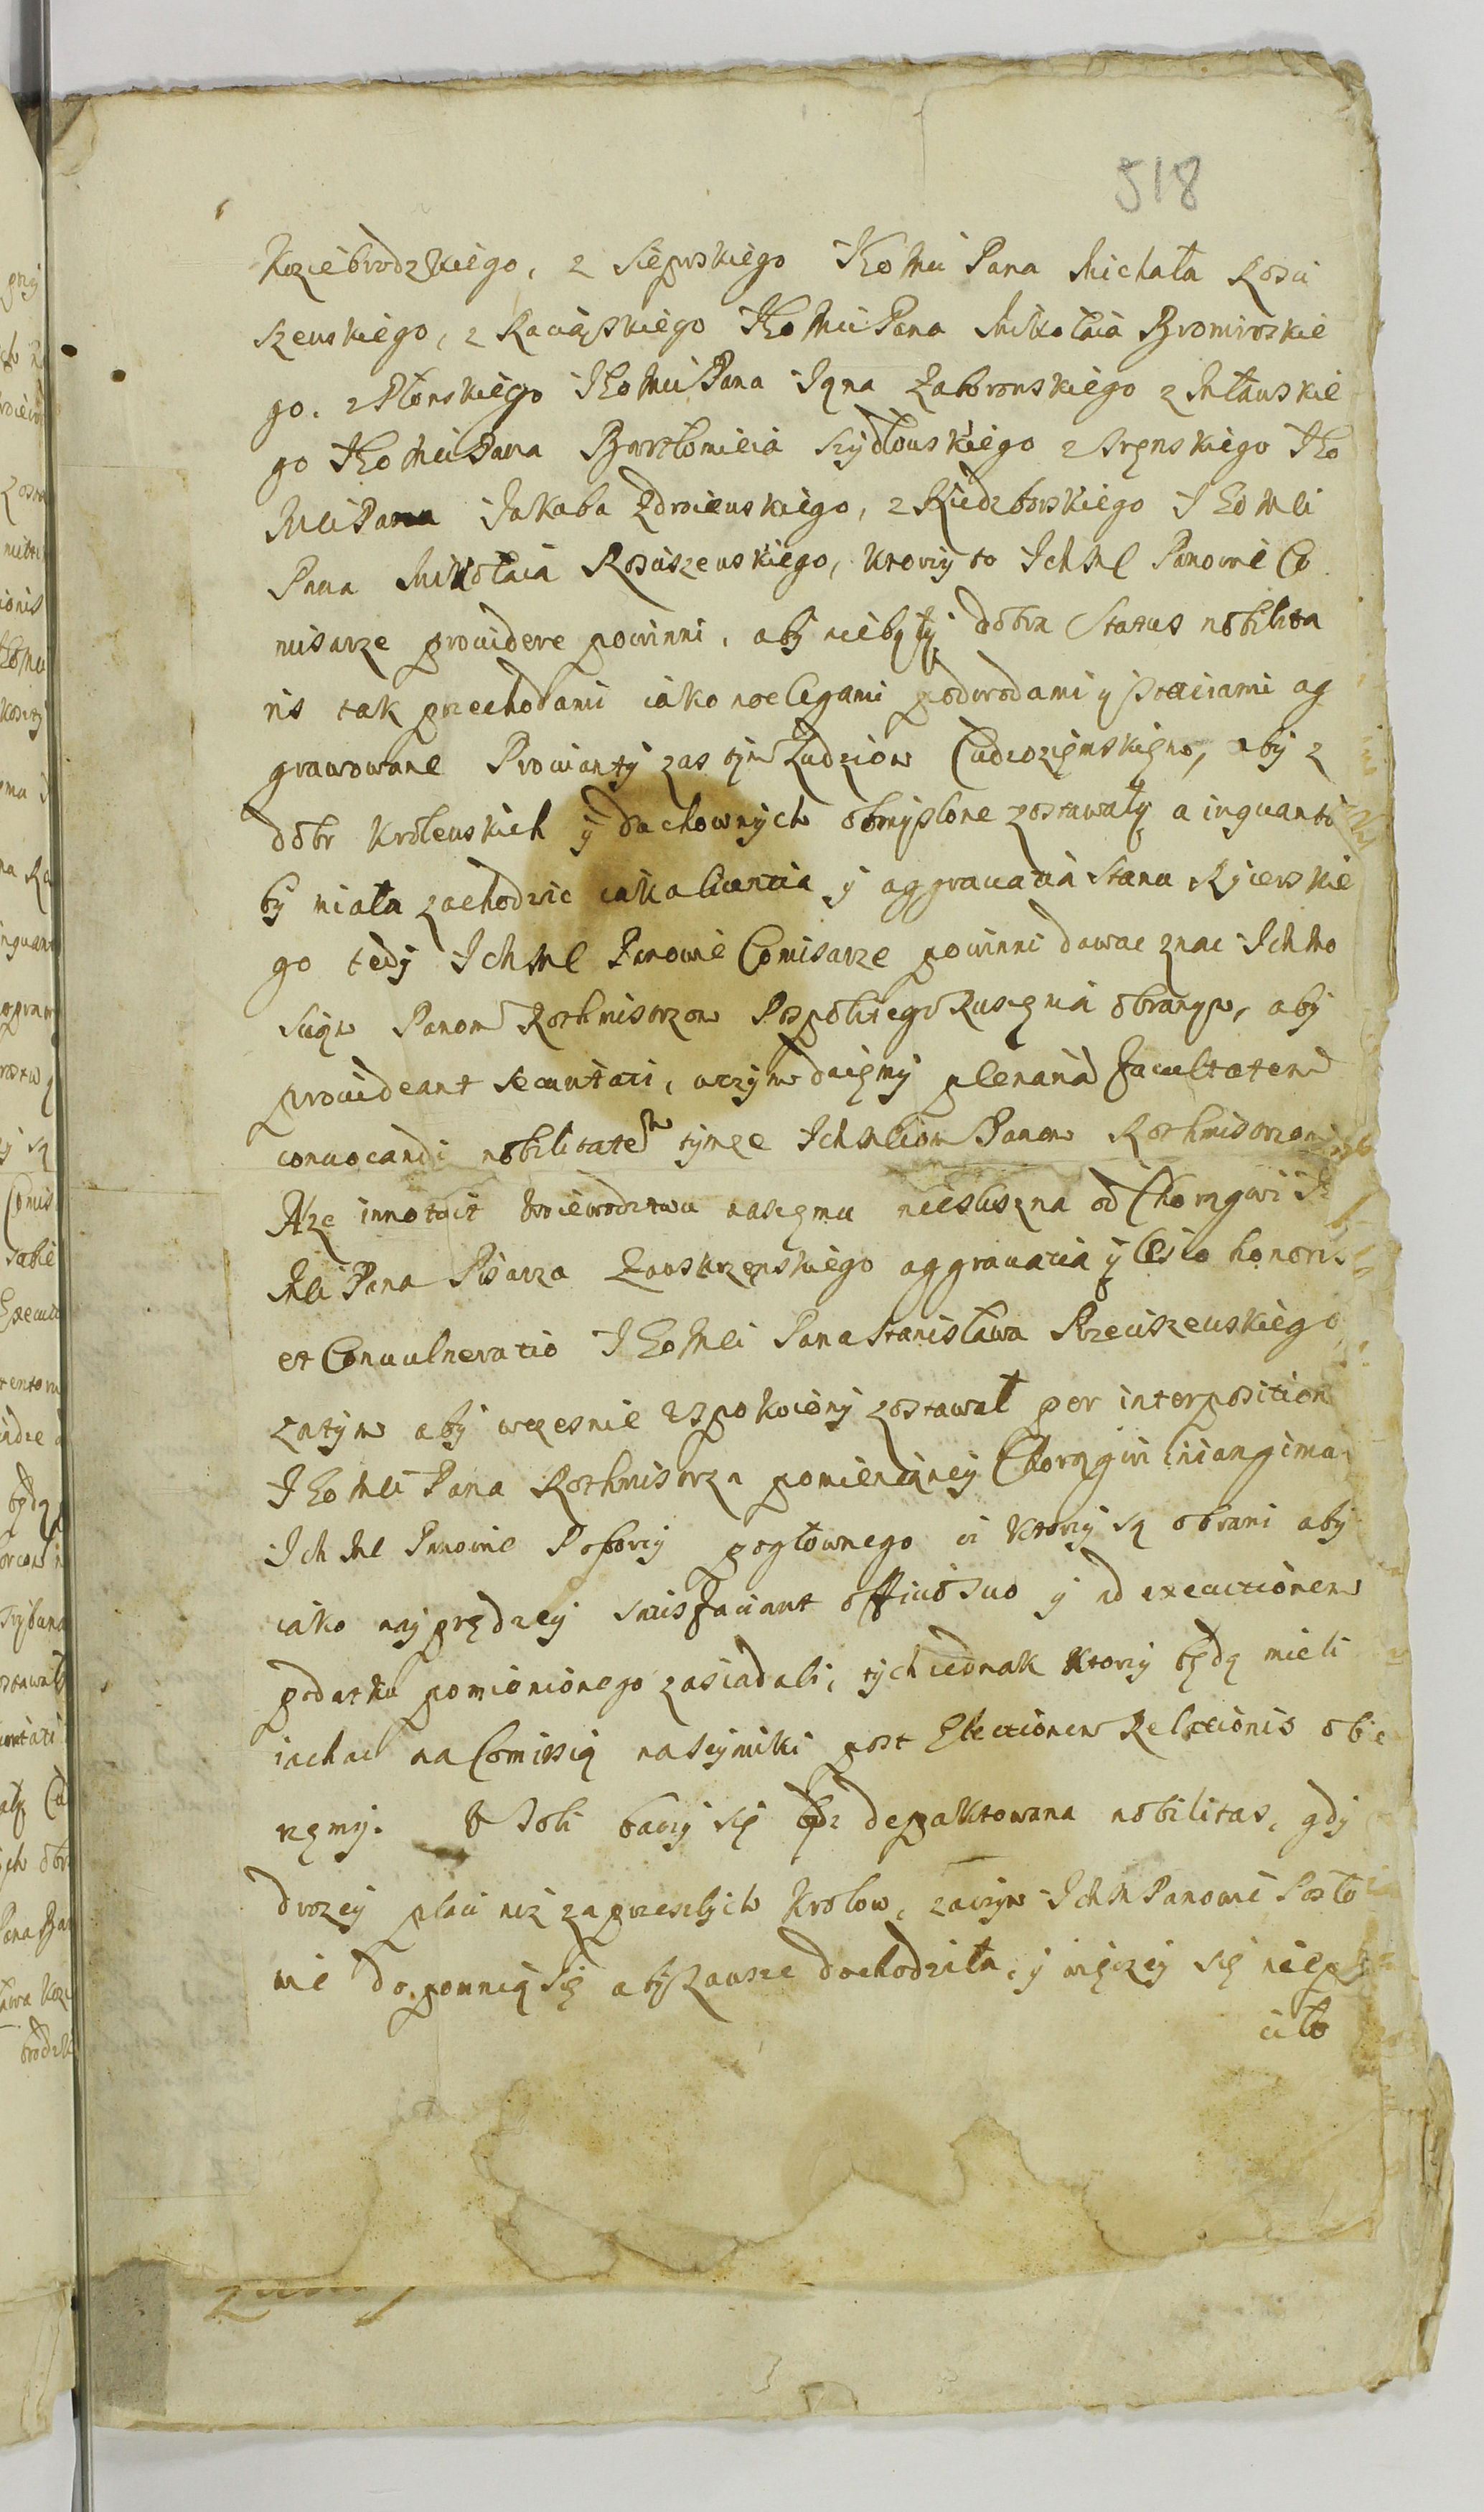 518
Koziebrodzkiego, z Siepskiego JKo Mci Pana Michała Rości
szewskiego, z Raciąskiego JKo Mci Pana Mikołaia Bromirskie
go. z Płonskiego JKo Mci Pana Jgna Zaborowskiego z Mławskie
go JKo Mci Pana Bartłomieia Szydłowskiego z Sręnskiego JKo
Mci Pana Jakuba Zdroiewskiego, z Niedzborskiego JEo Mci
Pana Mikołaia Rościszewskiego, ktorzy to Ich Me Panowie Co
misarze prouidere powinni, aby niebyły dobra Status nobilita
ris tak przechodami iako noclegami podwodami y staciami ag
grawowane Prowianty zas tym Ludziom Cudzoziemskięmo, aby z
dobr krolewskich y duchownych obmyslone zostawały a inquanto
by miała zachodzic iaka licentia y aggrauatia Stanu Rycerskie
go tedy Ich Me Panowie Comisarze powinni dawac znac Ich Mo
sciom Panom Rothmistrzom Pospolitego Ruszęnia obranym, aby
prouideant securitati, wczym daięmy plenariã facultatem
conuocandi nobilitatem tymze Ich Mciom Panom Rothmistrzom
Aze innotuit Woiewodztwu naszęmu niesłuszna od Chorągwi JE
Mci Pana Pisarza Zauskrzenskiego aggrauatia y lesio honoris
et Conuulneratio JEo Mci Pana Stanisława Rzeciszewskiego
zatym aby wczesnie uspokoiony zostawał per interposition
JEo Mci Pana Rothmistrza pomienioney Chorągwi iniungimus
Ich Me Panowie Poborcy pogłownego ci ktorzy są obrani aby
iako nayprędzey satisfaciant officio suo y ad executionem
podatku pomienionego zasiadali, tych iednak ktorzy będą mieli
iachac na Comissią naseymiki post Electionem Relationis obie
rzęmy. W Soli baczy się bydz depaktowana nobilitas, gdy
drozey płaci niz za przeszłych Krolow, zaczym Ich M Panowie Posło
wie dopomnią się aby zawsze dochodziła, y więczey się nie
ciło